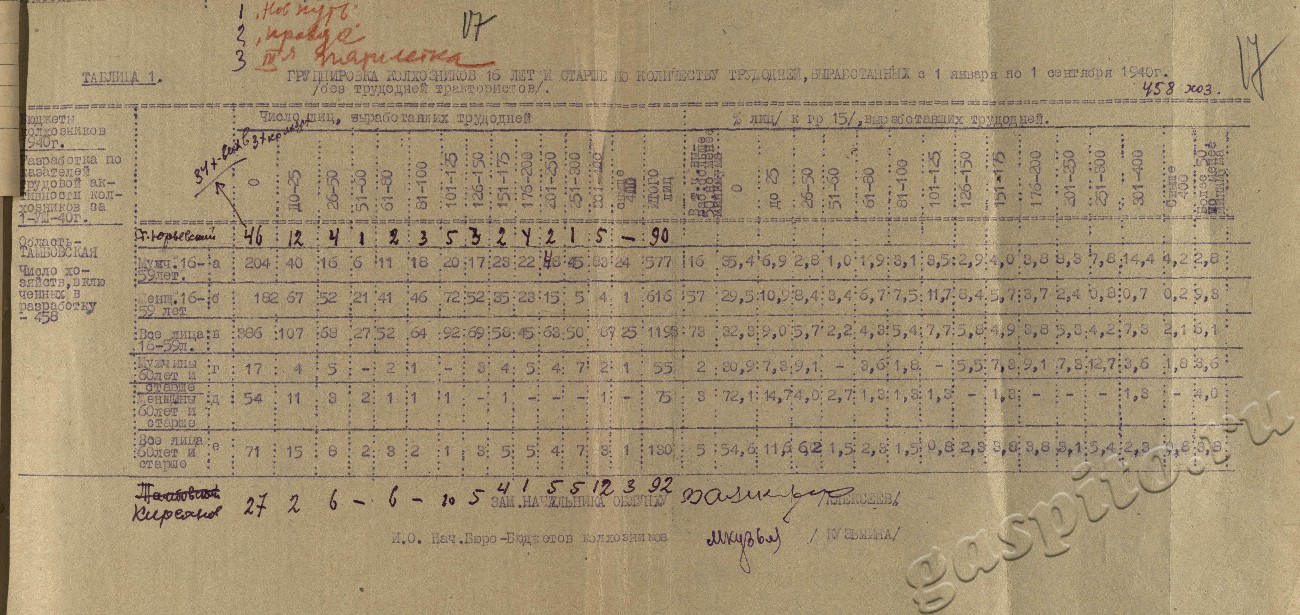 1 "Нов путь"
2 "правда"
3 III я пятилетка
17
17
ТАБЛИЦА 1.
ГРУППИРОВКА КОЛХОЗНИКОВ 16 ЛЕТ И СТАРШЕ ПО КОЛИЧЕСТВУ ТРУДОДНЕЙ, ВЫРАБОТАННЫХ с 1 января по 1 сентября 1940г.
/без трудодней трактористов/.
458 хоз.
Бюджеты колхозников 1940г.
Число лиц, выработавших трудодней
% лиц/ к гр 15/, выработавших трудодней.
Разработка показателей трудовой активности колхозников за
0 до-25 26-50 51-60 61-80 81-100 101-125 126-150 151-175 176-200 201-250 251-300 301-400 свыше 400 ИТОГО лиц
0 до 25 26-50 51-60 61-80 81-100 101-125 126-150 151-175 176-200 201-250 251-300 301-400 Свыше 400
46 12 4 1 2 3 5 3 2 4 2 1 5 – 90
Область- ТАМБОВСКАЯ
Число хозяйств, включенных в разработку - 458
Мужч. 16-59лет. а 204 40 16 6 11 18 20 17 23 22 45 83 24 577 16 35,4 6,9 2,8 1,0 1,9 3,1 3,5 2,9 4,0 3,8 8,3 7,8 14,4 4,2 2,8
Женщ. 16-59 лет б 182 67 52 21 41 46 72 52 35 23 15 5 4 1 616 57 29,5 10,9 8,4 3,4 6,7 7,5 11,7 8,4 5,7 3,7 2,4 0,8 0,7 0,2 9,3
Все лица 16-59л. в 386 107 68 27 52 64 92 69 58 45 63 50 87 25 1193 73 32,3 9,0 5,7 2,2 4,3 5,4 7,7 5,8 4,9 3,8 5,3 4,2 7,3 2,1 6,1
Мужчины 60лет и старше г 17 4 5 - 2 1 - 3 4 5 4 7 2 1 55 2 30,9 7,3 9,1 - 3,6 1,8 - 5,5 7,3 9,1 7,3 12,7 3,6 1,8 3,6
Женщины 60лет и старше д 54 11 3 2 1 1 1 - 1 - - - 1 - 75 3 72,1 14,7 4,0 2,7 1,3 1,3 1,3 - 1,3 - - - 1,3 - 4,0
Все лица 60лет и старше е 71 15 8 2 3 2 1 3 5 5 4 7 3 1 130 5 54,6 11,6 6,2 1,5 2,3 1,5 0,8 2,3 3,8 3,8 3,1 5,4 2,3 0,8 3,8
Кирсанов 27 2 6 – 6 – 10 5 4 1 5 5 12 3 92
ЗАМ. НАЧАЛЬНИКА ОБЛУНХУ /АЛЕКСЕЕВ/
И.О. Нач. Бюро-Бюджетов колхозников / КУЗЬМИНА/
gaspito.ru